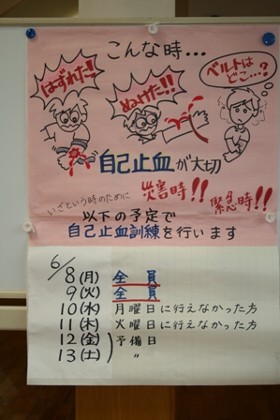 こんな時…
はずれた!!
ぬけた!!
ベルトはどこ…?
自己止血が大切
いざという時のために
災害時!!
緊急時!!
以下の予定で
自己止血訓練を行います
6/8(月) 全員
9(火) 全員
10(水) 月曜日に行えなかった方
11(木) 火曜日に行えなかった方
12(金) 予備日
13(土) 〃